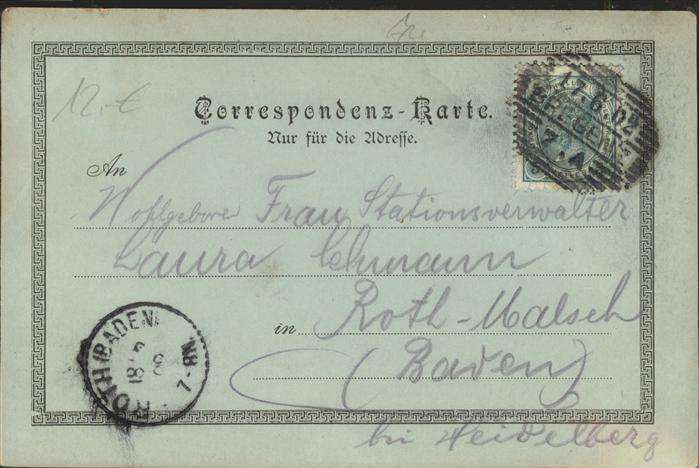 12.-€
Correspondenz-Karte.
Nur für die Adresse.
An
Wohlgebore Frau Stationsverwalter
Laura Lehmann
in Roth-Malsch
(Baden)
bei Heidelberg
17.6.02
BREGENZ
7.A
ROTH (BADEN)
18
7-8N.